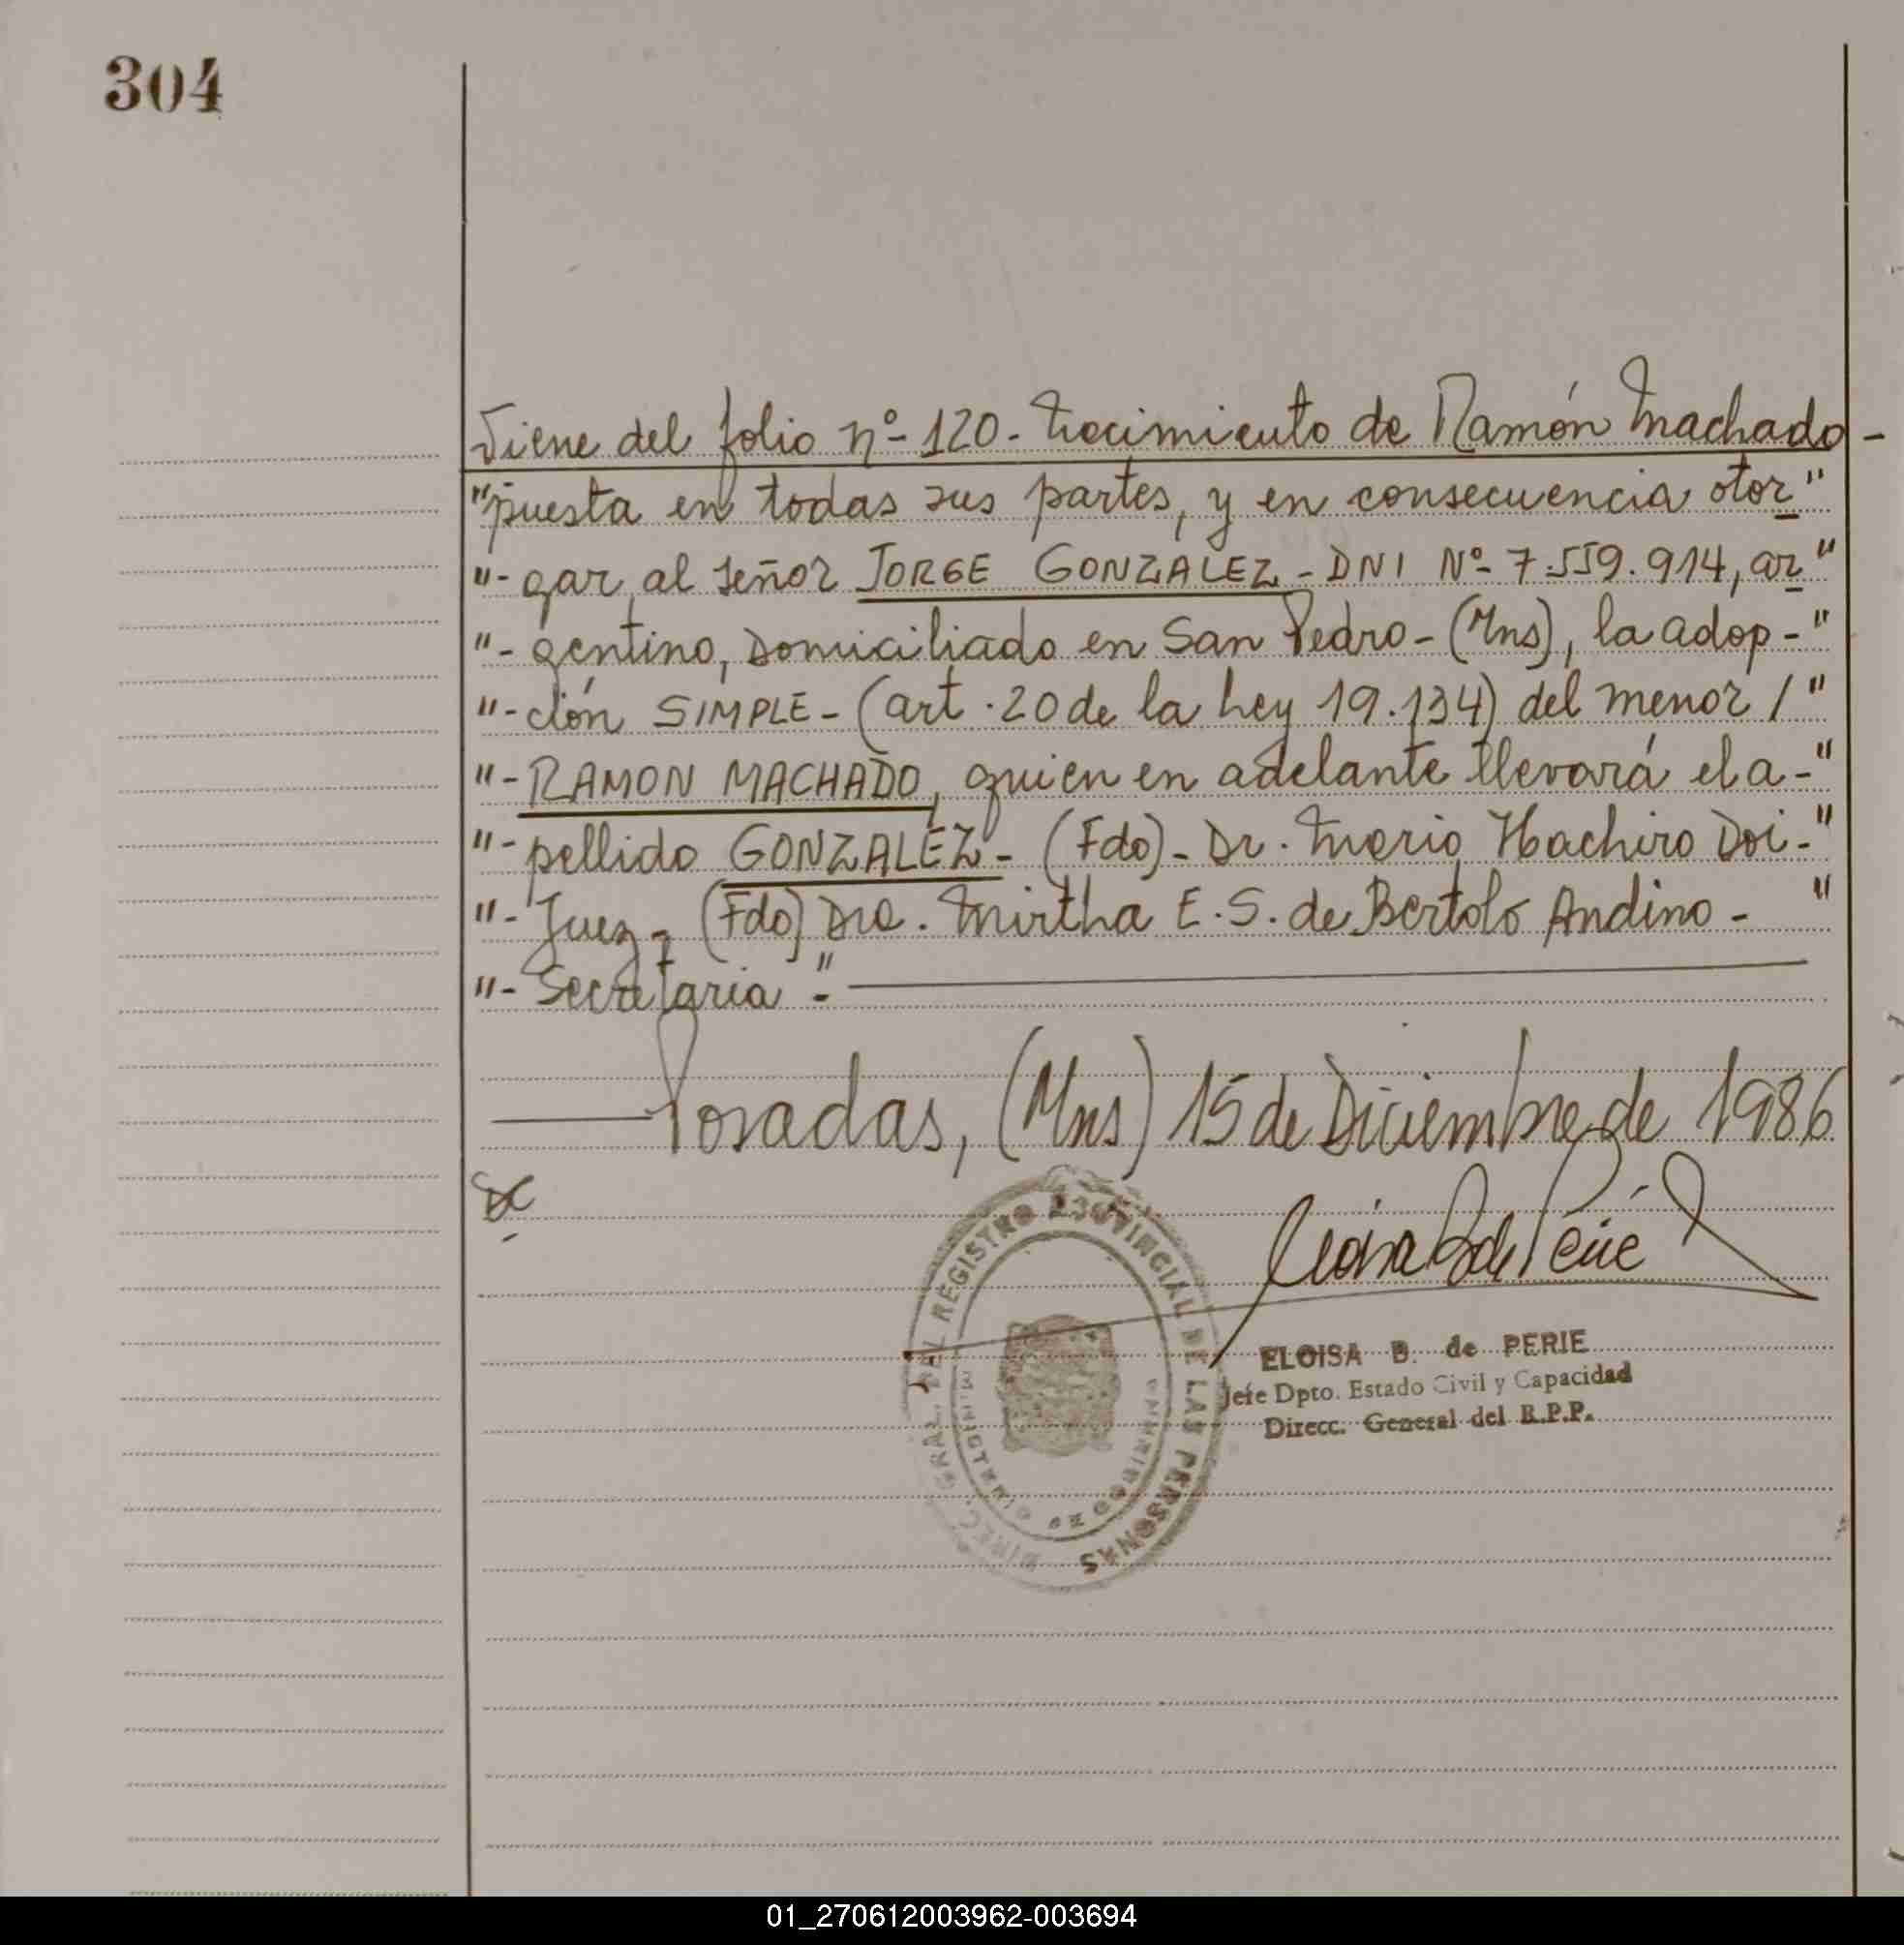 304
Viene del folio nº 120 - Nacimiento de Ramón Machado -
"puesta en todas sus partes, y en consecuencia otor"
"- gar al señor JORGE GONZALEZ - DNI Nº 7.559.914, ar"
"- gentino, Domiciliado en San Pedro - (Mns), la adop - "
"- ción SIMPLE - (art. 20 de la Ley 19.134) del menor / "
"- RAMON MACHADO, quien en adelante llevará el a - "
"- pellido GONZALEZ - (Fdo) - Dr. Mario Hachiro Doi - "
"- Juez - (Fdo) Dra. Mirtha E. S. de Bertolo Andino - "
"- Secretaria " -
Posadas, (Mns) 15 de Diciembre de 1986
DIREC. GRAL. DEL REGISTRO PROVINCIAL DE LAS PERSONAS
MINISTERIO DE GOBIERNO
ELOISA B. de PERIE
Jefe Dpto. Estado Civil y Capacidad
Direcc. General del R.P.P.
01_270612003962-003694